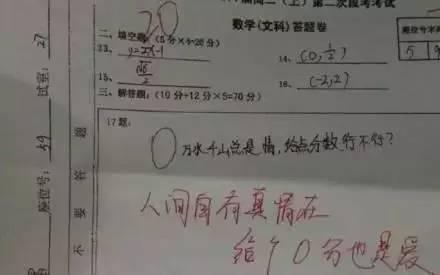 高二(上)第二次段考考试
数学(文科)答题卷
20
二、填空题:(5分×4=20分)
13、y=2x-1
14、(0,1/2)
15、√6/2
16、(-2,2)
三、解答题:(10分+12分×5=70分)
17题:
0
万水千山总是情,给点分数行不行?
人间自有真情在
给个0分也是爱
试室:27
座位号:59
不要答题